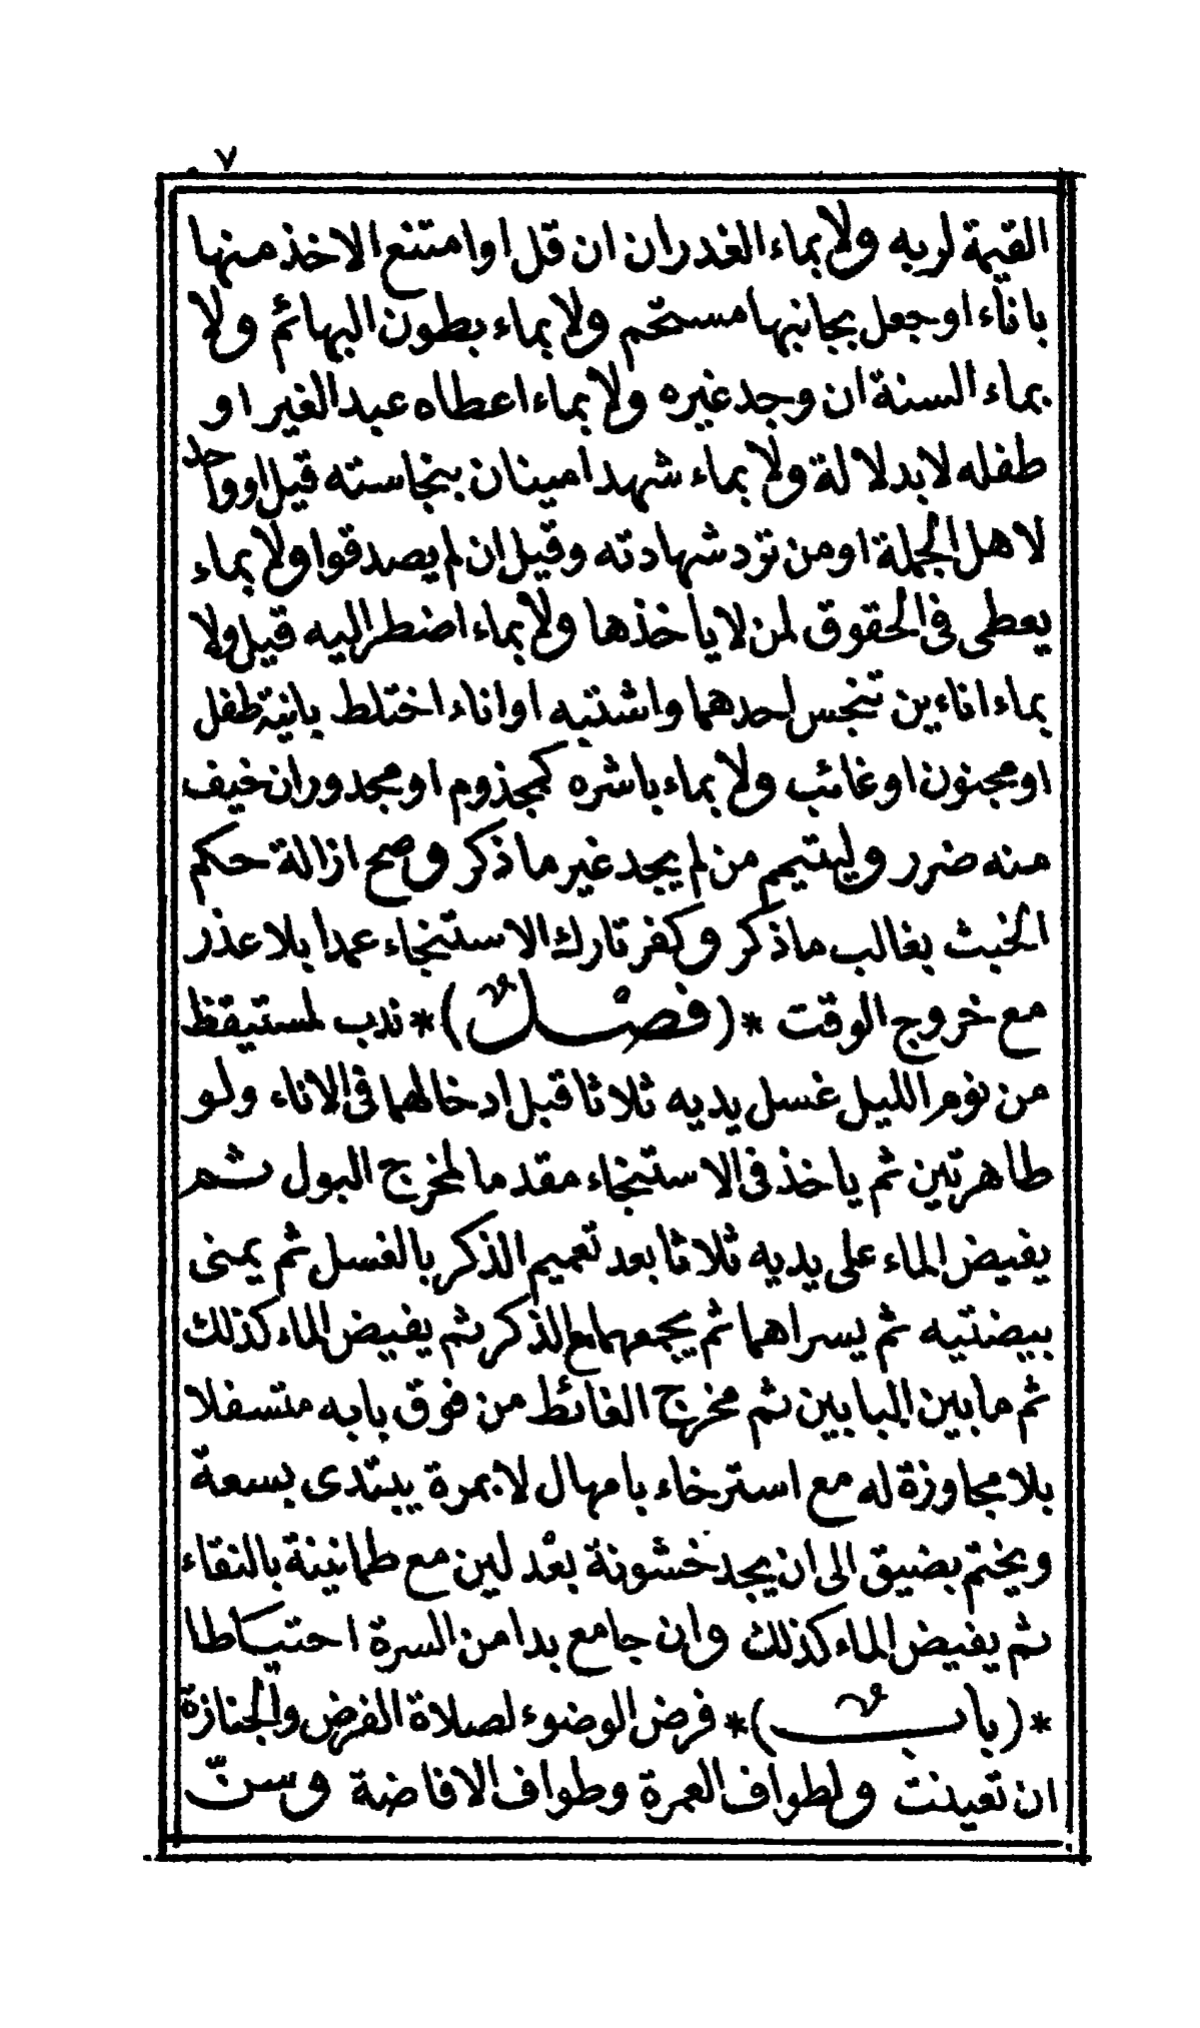 ٧
القيمة لربه ولا بماء الغدران ان قل او امتنع الاخذ منها
باناء او جعل بجانبها مستحم ولا بماء بطون البهائم ولا
بماء السنة ان وجد غيره ولا بماء اعطاه عبد الغير او
طفله لا بدلالة ولا بماء شهد امينان بنجاسته قيل او واحد
لا هل الجملة او من ترد شهادته وقيل ان لم يصدقوا ولا بماء
يعطى فى الحقوق لمن لا ياخذها ولا بماء اضطر اليه قيل ولا
بماء اناءين تنجس احدهما واشتبه او اناء اختلط بانية طفل
او مجنون او غائب ولا بماء باشره كمجذوم او مجدور ان خيف
منه ضرر وليتيمم من لم يجد غير ما ذكر وصح ازالة حكم
الخبث بغالب ما ذكر وكفر تارك الاستنجاء عمدا بلا عذر
مع خروج الوقت *(فصل)* ندب لمستيقظ
من نوم الليل غسل يديه ثلاثا قبل ادخالهما فى الاناء ولو
طاهرتين ثم ياخذ فى الاستنجاء مقدما لمخرج البول ثم
يفيض الماء على يديه ثلاثا بعد تعميم الذكر بالغسل ثم يمنى
بيضتيه ثم يسراهما ثم يجمعهما مع الذكر ثم يفيض الماء كذلك
ثم ما بين البابين ثم مخرج الغائط من فوق بابه متسفلا
بلا مجاوزة له مع استرخاء بامهال لا بمرة يبتدى بسعة
ويختم بضيق الى ان يجد خشونة بعد لين مع طمانينة بالنقاء
ثم يفيض الماء كذلك وان جامع بدا من السرة احتياطا
*(باب)* فرض الوضوء لصلاة الفرض والجنازة
ان تعينت ولطواف العمرة وطواف الافاضة وسنّ